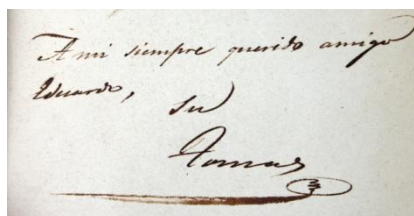 A mi siempre querido amigo
Eduardo,
Su
Tomas